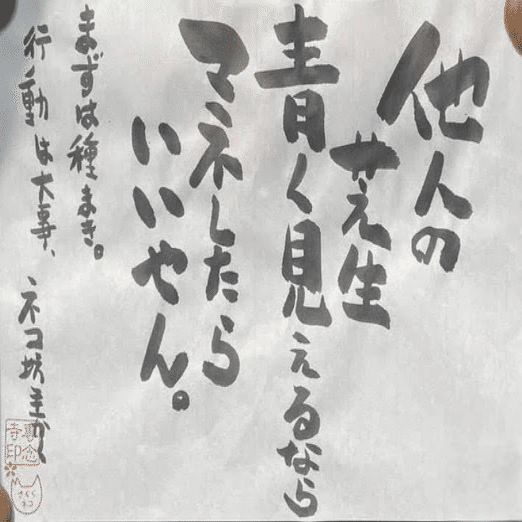 他人の
芝生
青く見えるなら
マネしたら
いいやん。
まずは種まき。
行動は大事、
ネコ坊主かく
専念
寺印